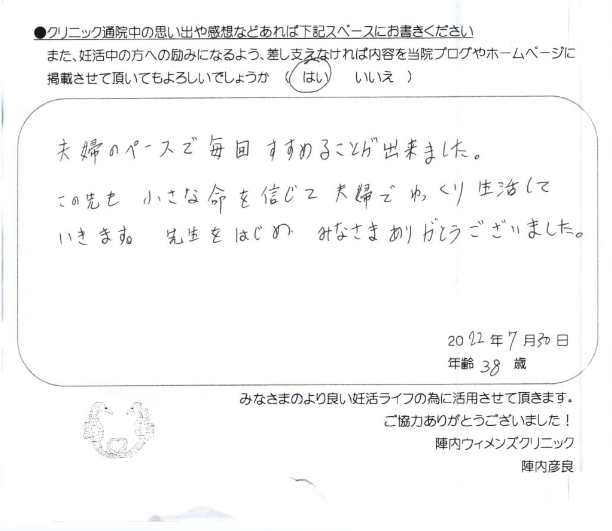 ●クリニック通院中の思い出や感想などあれば下記スペースにお書きください
また、妊活中の方への励みになるよう、差し支えなければ内容を当院ブログやホームページに
掲載させて頂いてもよろしいでしょうか ( はい いいえ )
夫婦のペースで毎回すすめることが出来ました。
この先も 小さな命を信じて 夫婦で ゆっくり 生活して
いきます。 先生をはじめ みなさまありがとうございました。
2022年7月30日
年齢 38 歳
みなさまのより良い妊活ライフの為に活用させて頂きます。
ご協力ありがとうございました！
陣内ウィメンズクリニック
陣内彦良